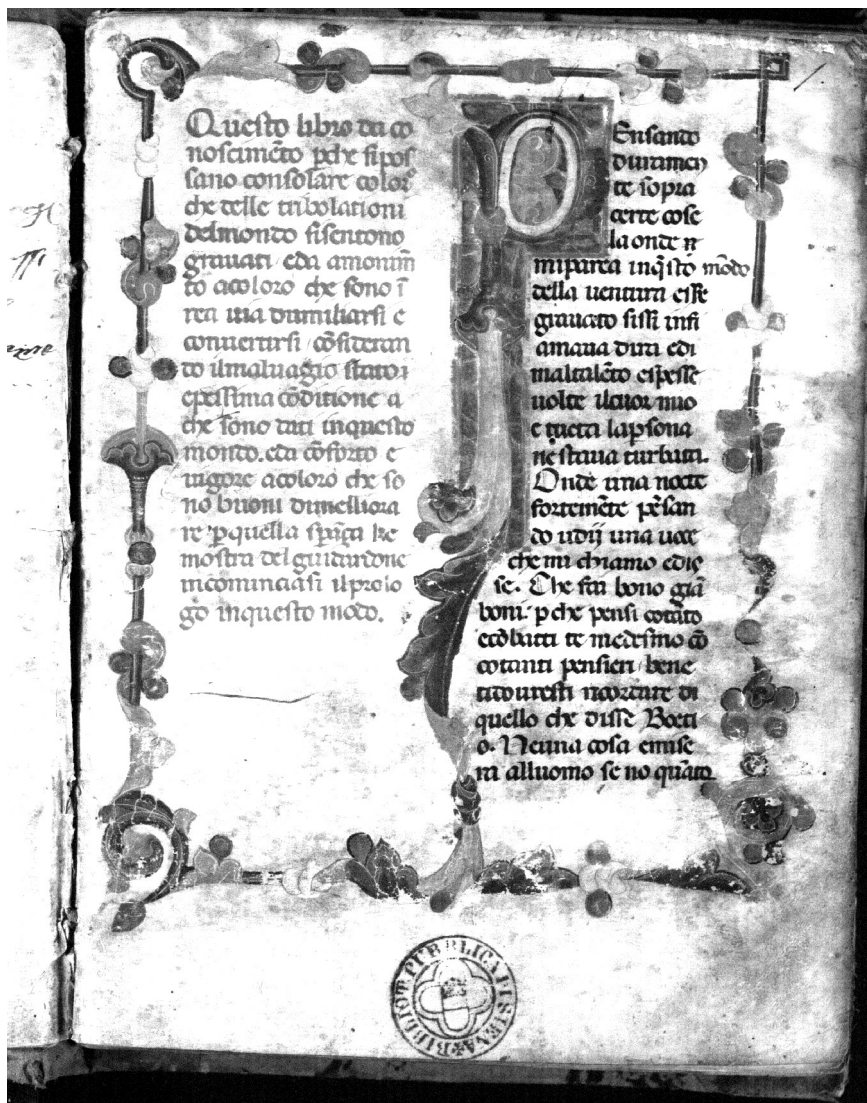 Questo libro da co
noscimēto ꝑche si pos
sano consolare color
che delle tribolationi
del mondo si sentono
grauati eda amonim̄
to acoloro che sono ī
rea uia dumiliarsi e
conuertirsi cōsideran
do il maluagio stato ⁊
epessima cōditione a
che sono dati inquesto
mondo. eda cōforto e
uigore acoloro che so
no buoni di melliora
re ꝑ quella
mostra del guidardone
incominciasi il prolo
go inquesto modo.
PEnsando
duramen
te sopra
certe cose
la onde
mi parea inq̄sto modo
della uentura esse
grauato sissi infi
amaua dira edi
maltalēto espesse
uolte il cuor mio
e tutta la ꝑsona
ne staua turbata.
Onde una nocte
fortemēte pēsan
do udij una uoce
che mi chiamo edis
se. Che fai bono giā
boni. ꝑche pensi cotāto
te medesmo cō
cotanti pensieri bene
ti douresti ricordare di
quello che disse Boeti
o. Neuna cosa emise
ra alluomo se no quāto
BIBLIOT PUBBLICA